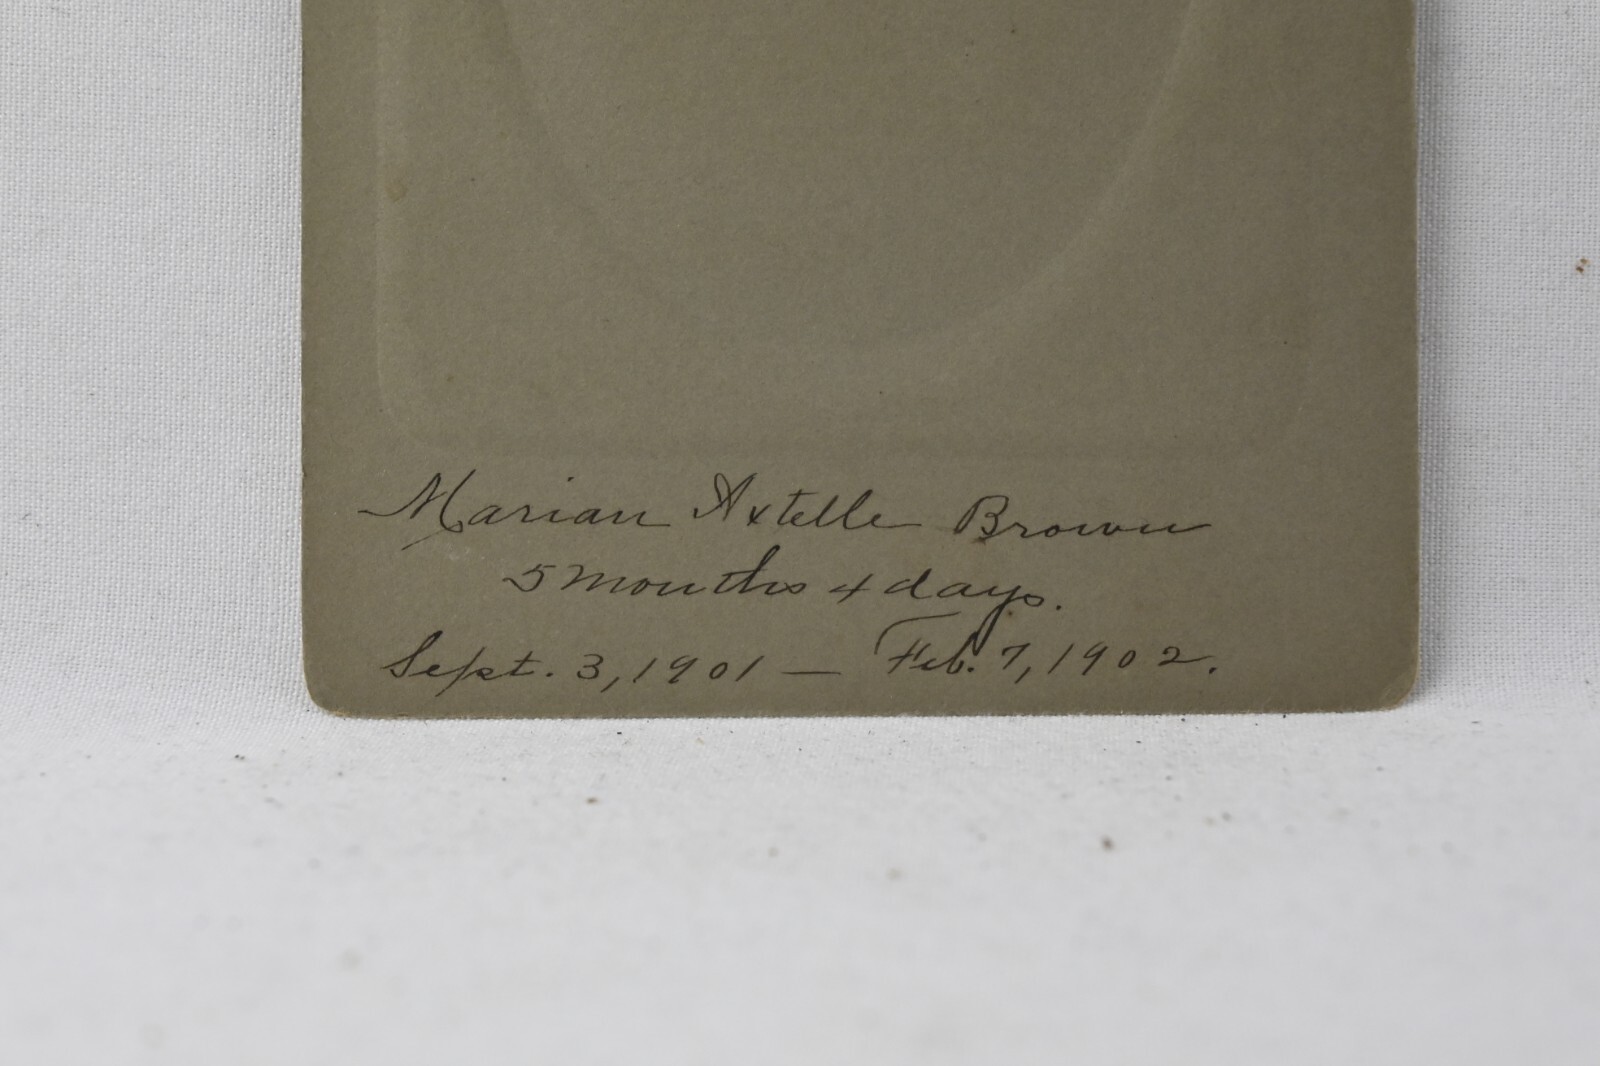 Marian Axtelle Brown
5 months 4 days.
Sept. 3, 1901 — Feb. 7, 1902.